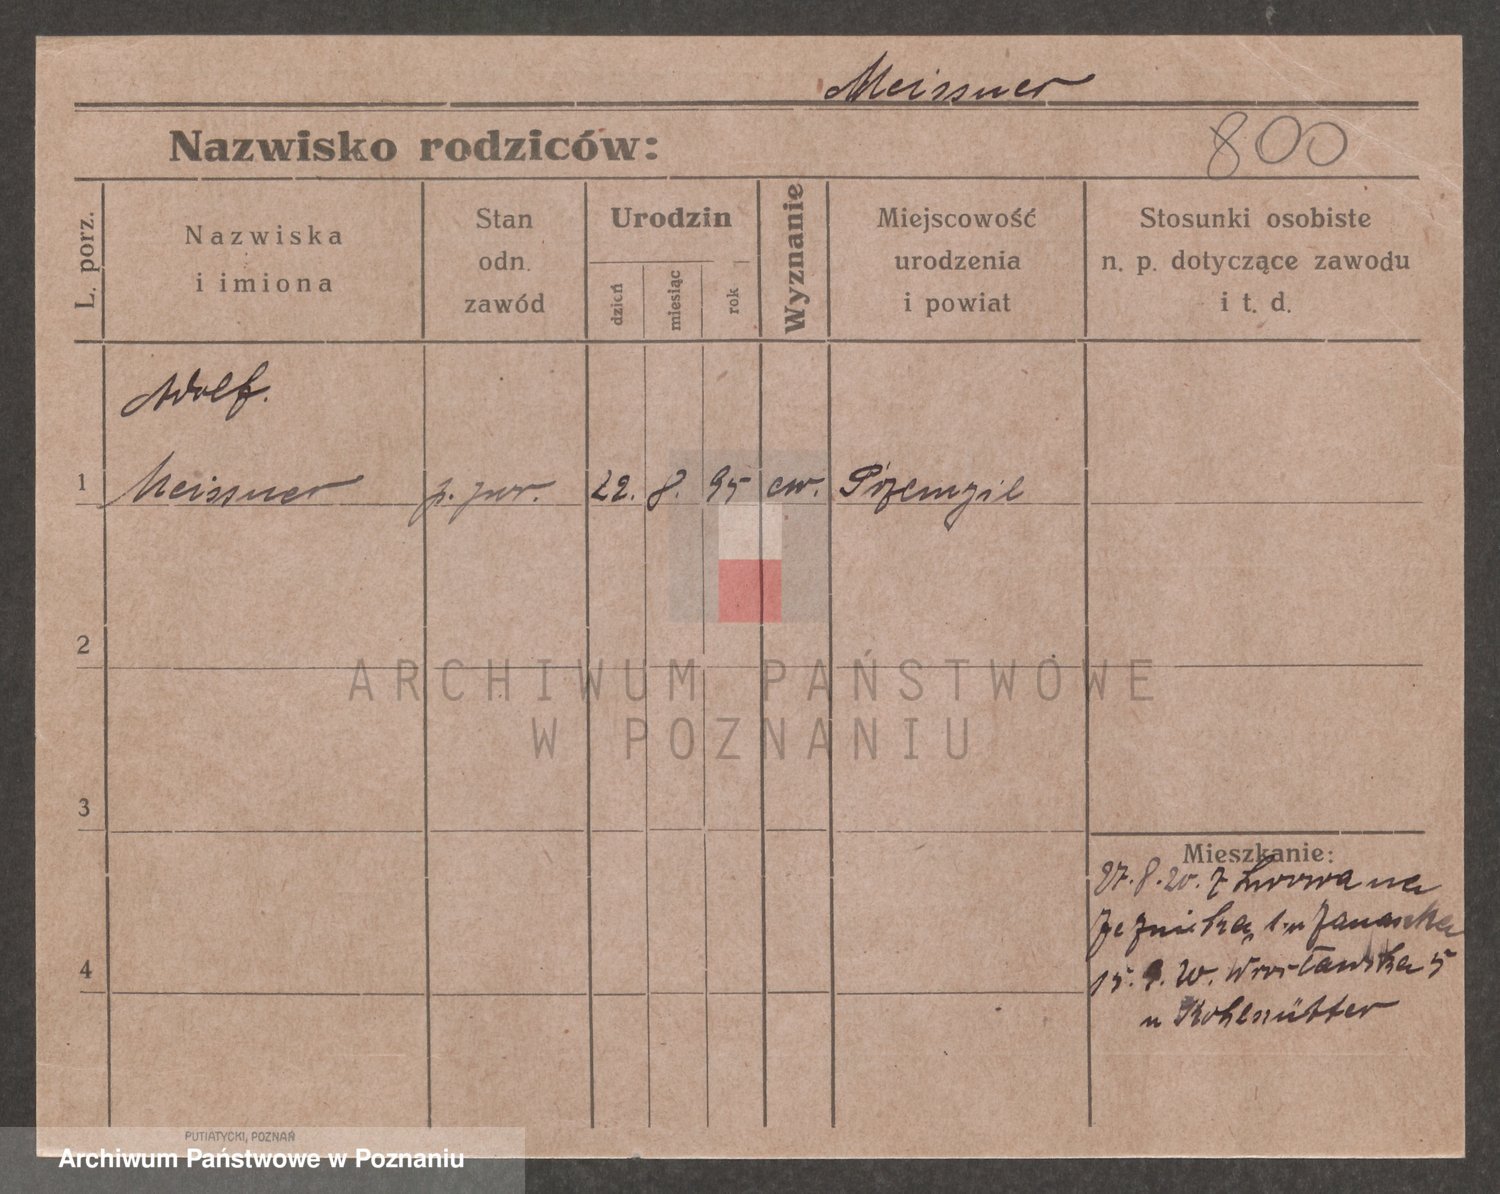 Meissner
Nazwisko rodziców:
800
L. porz.
Nazwiska
i imiona
Stan
odn.
zawód
Urodzin
dzień
miesiąc
rok
Wyznanie
Miejscowość
urodzenia
i powiat
Stosunki osobiste
n. p. dotyczące zawodu
i t. d.
Adolf.
1 Meissner 22. 8. 95 ew.
2
ARCHIWUM PAŃSTWOWE
W POZNANIU
3
Mieszkanie:
27.8.20. z Lwowa na
4
15.9.20. Wrocławska 5
u
PUTIATYCKI, POZNAŃ
Archiwum Państwowe w Poznaniu